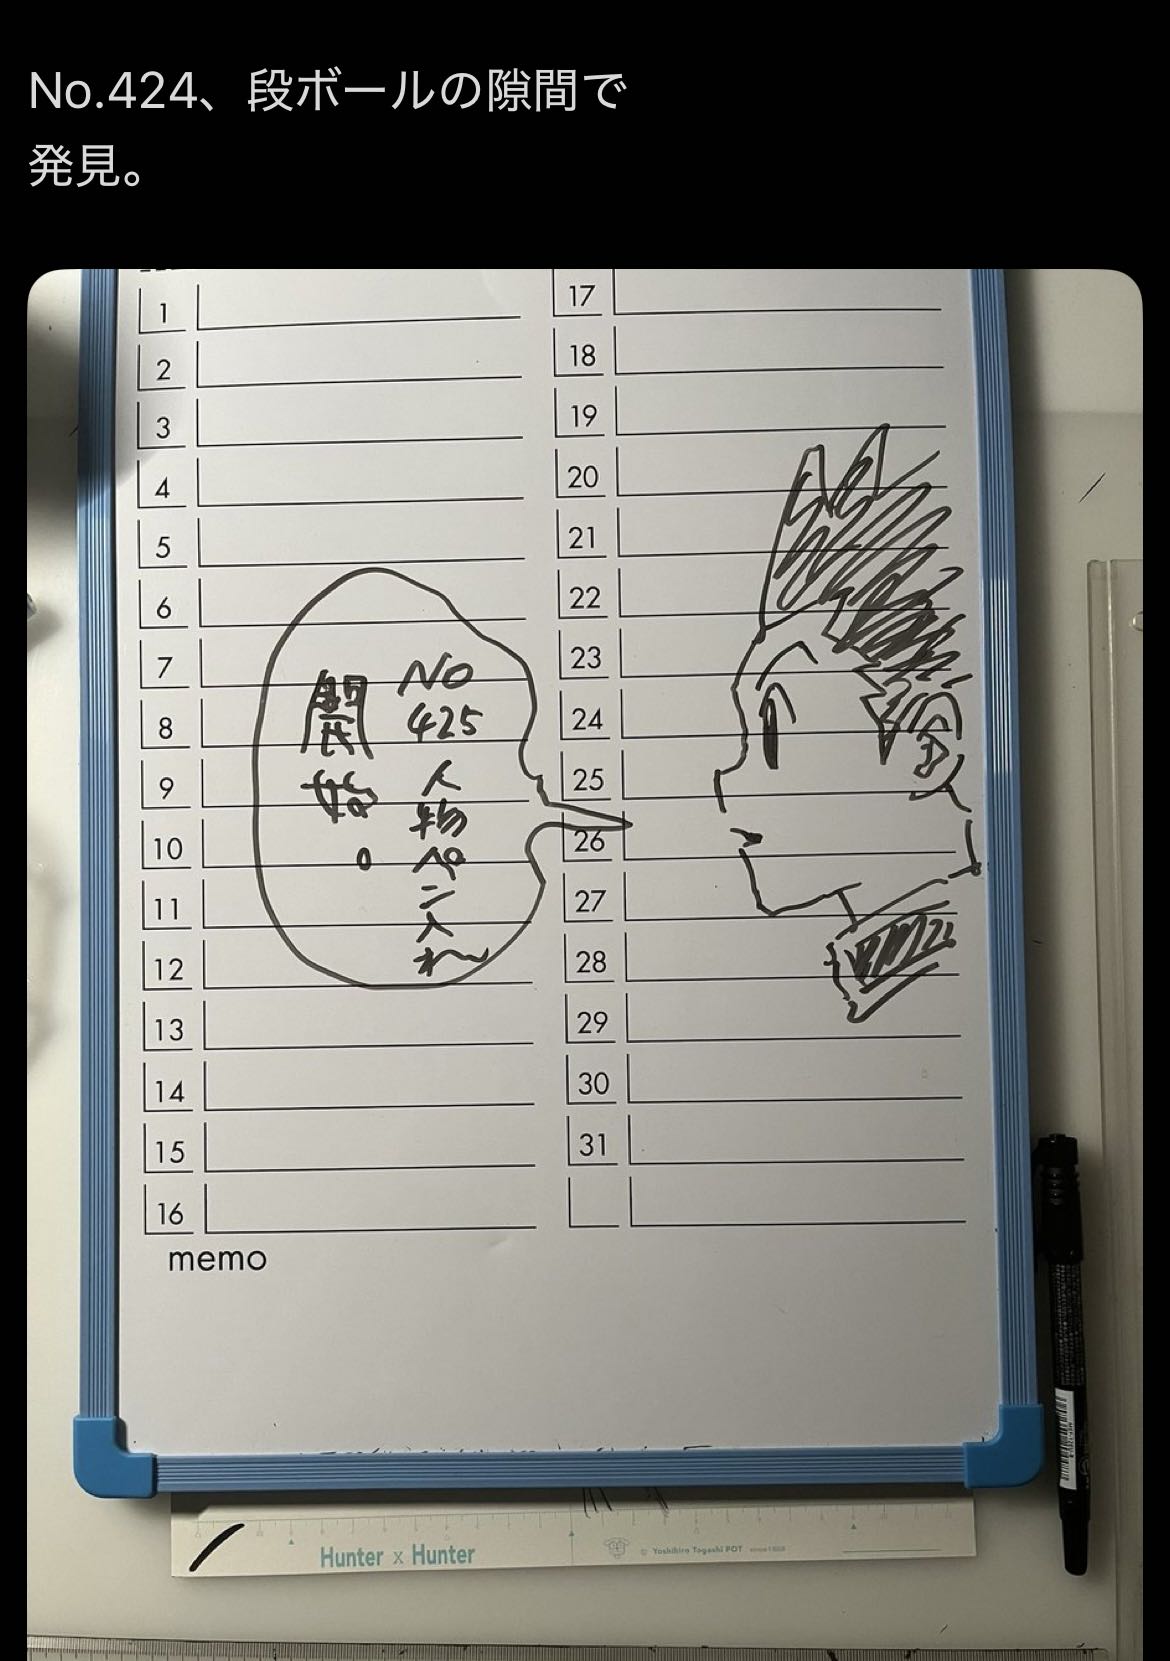 No.424、段ボールの隙間で
発見。
1
2
3
4
5
6
7
8
9
10
11
12
13
14
15
16
17
18
19
20
21
22
23
24
25
26
27
28
29
30
31
NO
425
人物ペン入れ
開始。
memo
Hunter x Hunter
© Yoshihiro Togashi POT